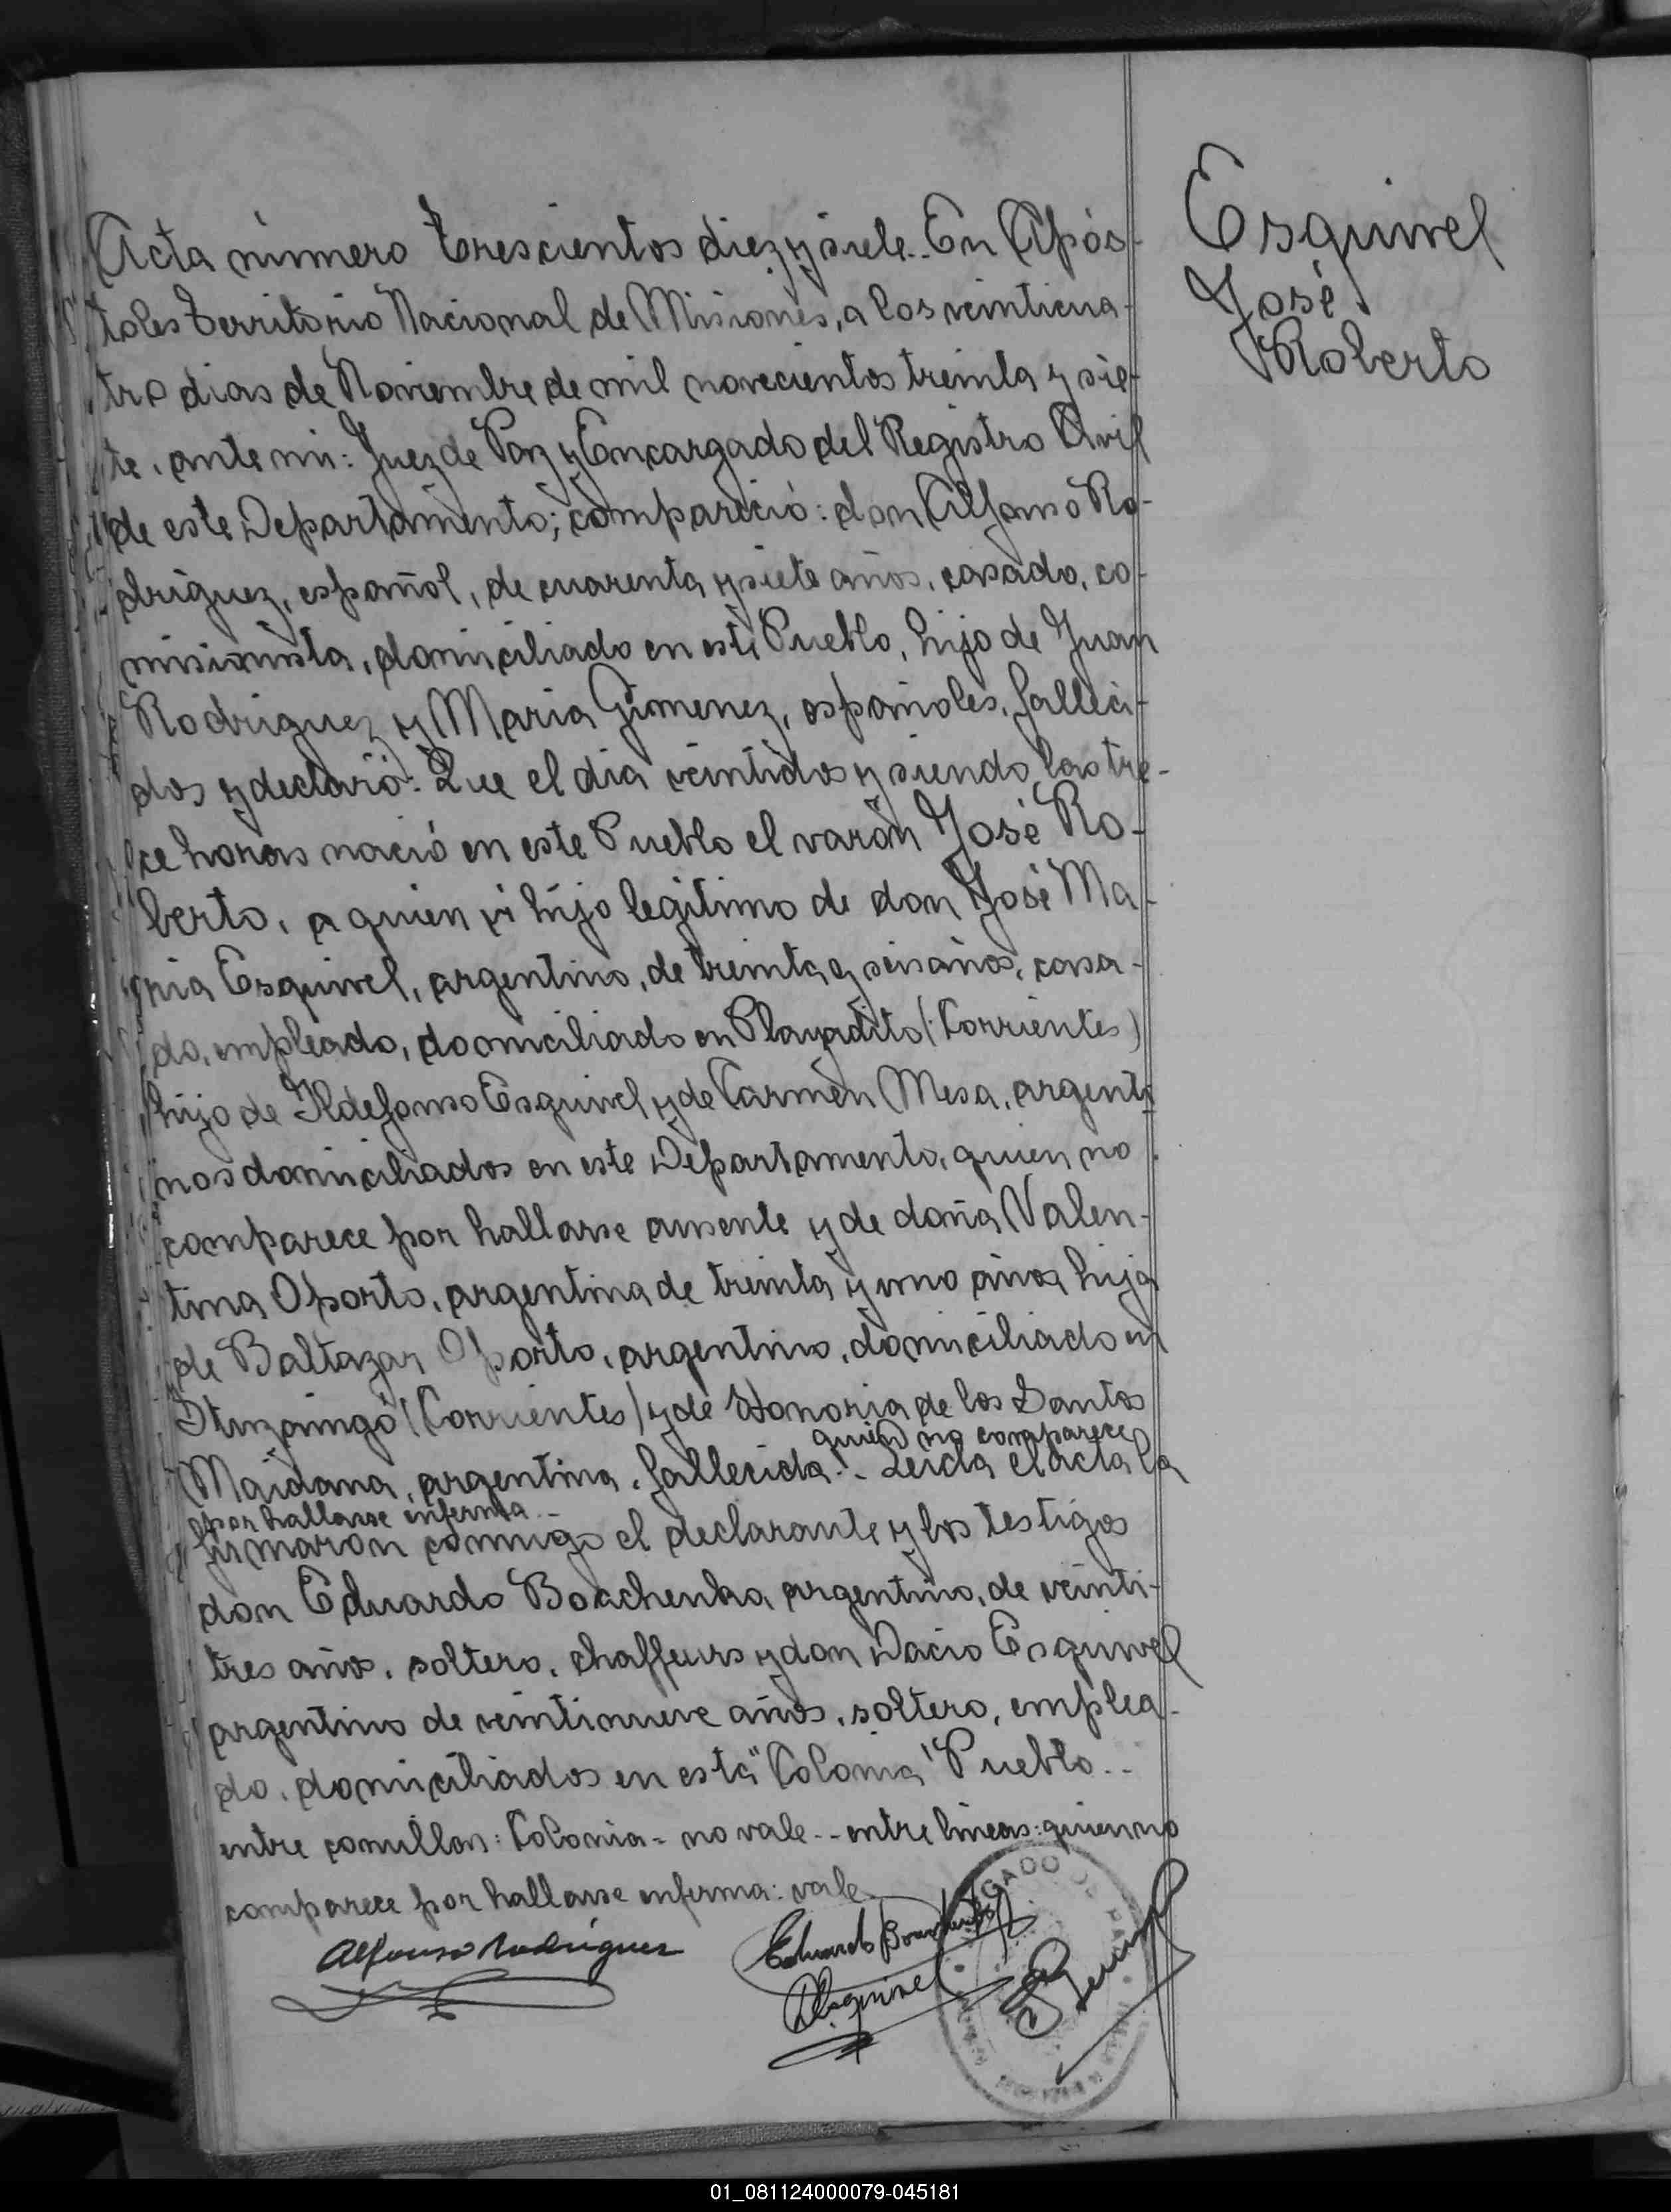 Acta número trescientos diez y siete.. En Após-
toles Territorio Nacional de Misiones, a los veinticua-
tro dias de Noviembre de mil novecientos treinta y sie-
te, ante mi: Juez de Paz y Encargado del Registro Civil
de este Departamento; compareció: don Alfonso Ro-
driguez, español, de cuarenta y siete años, casado, co-
misionista, domiciliado en este Pueblo, hijo de Juan
Rodriguez y Maria Gimenez, españoles, falleci-
dos y declaró: Que el dia veintidos y siendo las tre-
ce horas nació en este Pueblo el varón José Ro-
berto, a quien vi hijo legitimo de don José Ma-
ria Esquivel, argentino, de treinta y seis años, casa-
do, empleado, domiciliado en Playadito (Corrientes)
hijo de Ildefonso Esquivel y de Carmen Mesa, argenti
nos domiciliados en este Departamento, quien no
comparece por hallarse ausente y de doña Valen-
tina Oporto, argentina de treinta y uno años hija
de Baltazar Oporto, argentino, domiciliado en
Ituzaingó (Corrientes) y de Honoria de los Santos
quien no comparece
Maidana, argentina, fallecida!- Leida el acta la
por hallarse enferma..
firmaron conmigo el declarante y los testigos
don Eduardo Boachenko, argentino, de veinti-
tres años, soltero, chaffeurs y don Dacio Esquivel
argentino de veintinueve años, soltero, emplea-
do, domiciliados en esta "Colonia" Pueblo..
entre comillas: Colonia = no vale.. entre lineas: quien no
comparece por hallarse enferma: vale.
Alfonso Rodriguez
Eduardo
DEsquivel
Esquivel
José
Roberto
01_081124000079-045181